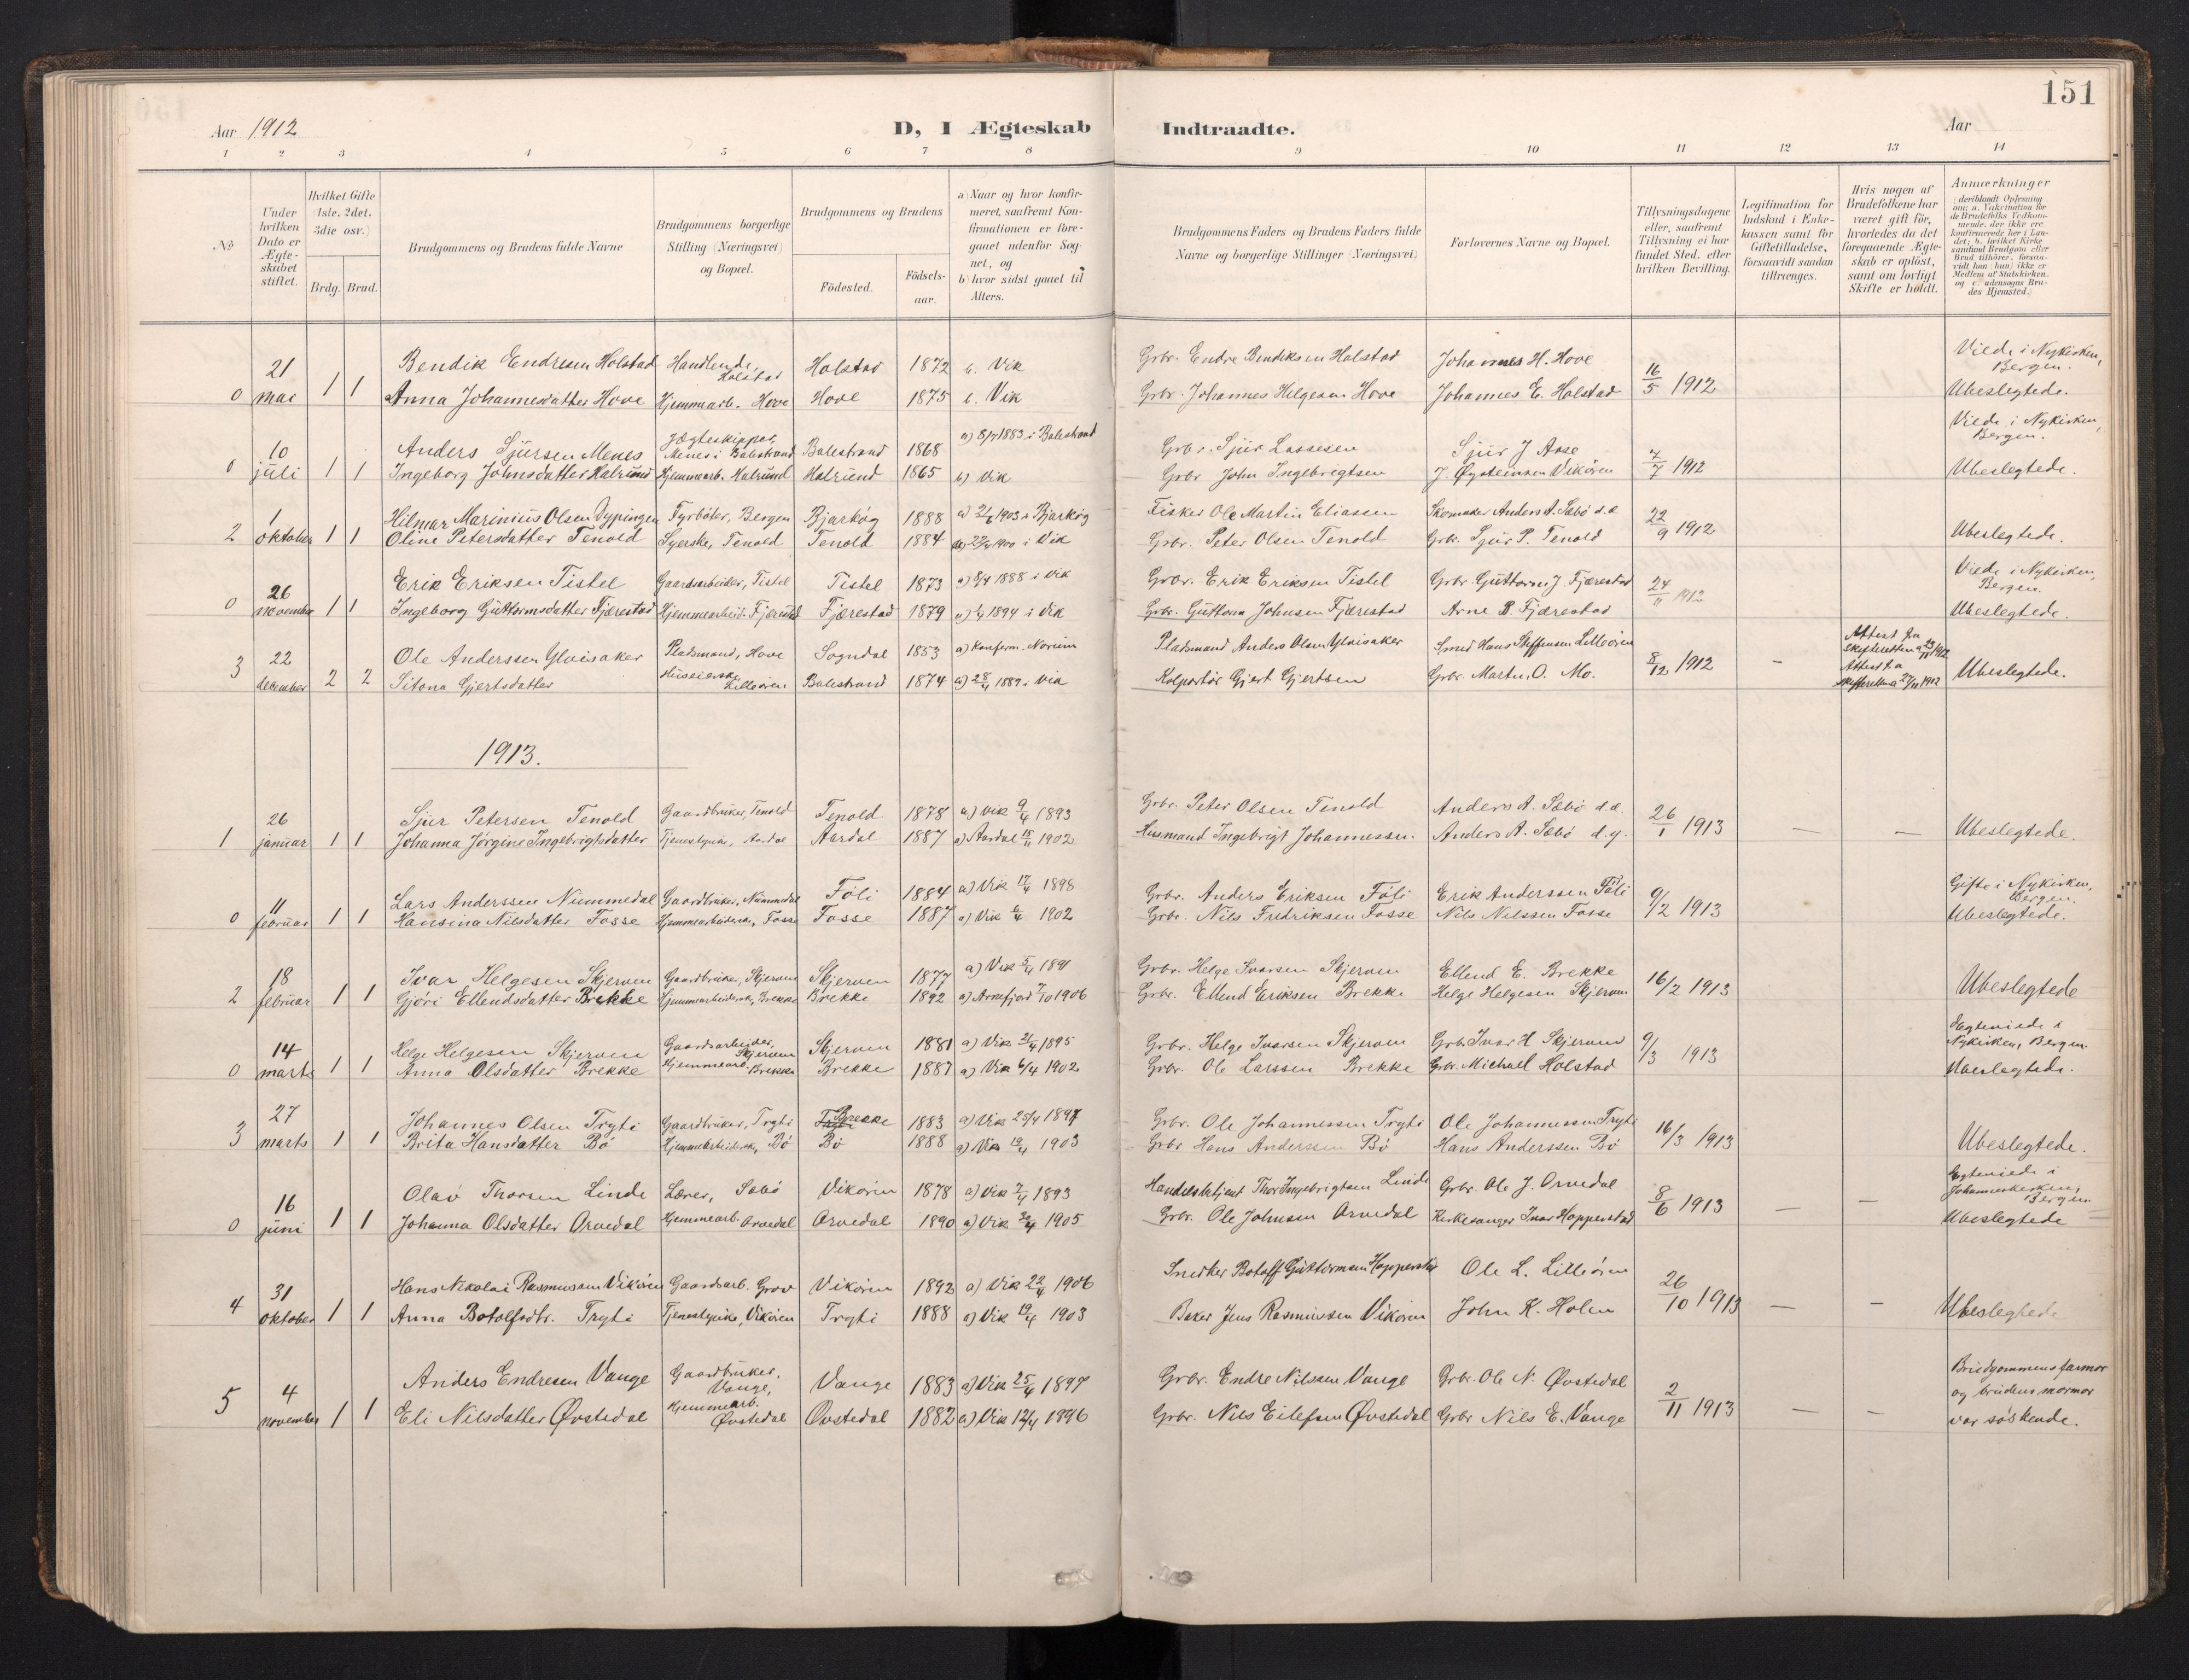 151
Aar 1912
D, I Ægteskab Indtraadte.
Aar
1 2 3 4 5 6 7 8 9 10 11 12 13 14
No.
Under hvilken Dato er Ægteskabet stiftet.
Hvilket Gifte (1ste, 2det, 3die osv.)
Brdg. Brud.
Brudgommens og Brudens fulde Navne
Brudgommens borgerlige Stilling (Næringsvei) og Bopæl.
Brudgommens og Brudens
Födested.
Födsels-aar.
a) Naar og hvor konfirmeret, saafremt Konfirmationen er foregaaet udenfor Sognet, og
b) hvor sidst gaaet til Alters.
Brudgommens Faders og Brudens Faders fulde Navne og borgerlige Stillinger (Næringsvei)
Forlovernes Navne og Bopæl.
Tillysningsdagene eller, saafremt Tillysning ei har fundet Sted, efter hvilken Bevilling.
Legitimation for Indskud i Enkekassen samt for Giftetilladelse, forsaavidt saadan tiltrænges.
Hvis nogen af Brudefolkene har været gift för, hvorledes da det foregaaende Ægteskab er oplöst, samt om lovligt Skifte er holdt.
Anmærkninger (deriblandt Oplysning om: a. Vakcination for de Brudefolks Vedkommende, der ikke ere konfirmerede her i Landet; b. hvilket Kirkesamfund Brudgom eller Brud tilhörer, forsaavidt han (hun) ikke er Medlem af Statskirken, og c. udensogns Brudes Hjemsted.)
0 21 mai 1 1 Bendik Endresen Holstad Handlende, Holstad Holstad 1872 b. Vik Grbr. Endre Bendiksen Holstad Johannes H. Hove 16/5 1912 Viede i Nykirken, Bergen.
Anna Johannesdatter Hove Hjemmearb. Hove Hove 1875 b. Vik Grbr. Johannes Helgesen Hove Johannes E. Holstad Ubeslegtede.
0 10 juli 1 1 Anders Sjursen Menes Jægteskipper, Menes i Balestrand Balestrand 1868 a) 8/7 1883 i Balestrand Grbr. Sjur Lassesen Sjur J Aase 7/7 1912 Viede i Nykirken, Bergen.
Ingeborg Johnsdatter Halrund Hjemmearb. Halrund Halrund 1865 b) Vik Grbr John Ingebrigtsen J. Øysteinsen Vikören Ubeslegtede.
2 1 oktober 1 1 Hilmar Marinius Olsen Dypingen Fyrböter, Bergen Bjarköy 1888 a) 21/6 1903 i Bjarköy Fisker Ole Martin Eliassen Skomaker Anders A. Sæbö d.e. 22/9 1912
Oline Petersdatter Tenold Syerske, Tenold Tenold 1884 a) 22/4 1900 i Vik Grbr. Peter Olsen Tenold Grbr. Sjur P. Tenold Ubeslegtede.
0 26 november 1 1 Erik Eriksen Tistel Gaardsarbeider, Tistel Tistel 1873 a) 8/4 1888 i Vik Grbr. Erik Eriksen Tistel Grbr. Guttorm J. Fjærestad 24/11 1912 Viede i Nykirken, Bergen.
Ingeborg Guttormsdatter Fjærestad Hjemmearbeid. Fjærestad Fjærestad 1879 a) 1/4 1894 i Vik Grbr. Guttorm Johnsen Fjærestad Arne B. Fjærestad Ubeslegtede.
3 22 december 2 2 Ole Anderssen Ylvisaker Pladsmand, Hove Sogndal 1853 a) Konferm. Norum Pladsmand Anders Olsen Ylvisaker Smed Hans Steffensen Lilleören 8/12 1912 - Attest fra skifteretten a 23/11 1912
Sitona Gjertsdatter Husseierske Lilleören Balestrand 1874 a) 28/4 1889 i Vik Kolportör Gjert Gjertsen Grbr. Martin O. Mo. Attest f.a skifteretten a 27/11 1912 Ubeslegtede.
1913.
1 26 januar 1 1 Sjur Petersen Tenold Gaardbruker, Tenold Tenold 1878 a) Vik 9/4 1893 Grbr. Peter Olsen Tenold Anders A. Sæbö d.e. 26/1 1913 - -
Johanna Jörgine Ingebrigtsdatter Tjenestepike, Aardal Aardal 1887 a) Aardal 15/11 1902 Husmand Ingebrigt Johannessen. Anders A. Sæbö d.y. Ubeslegtede.
0 11 februar 1 1 Lars Anderssen Nummedal Gaardbruker, Nummedal Föli 1884 a) Vik 17/4 1898 Grbr. Anders Eriksen Föli Erik Anderssen Föli 9/2 1913 Gifte i Nykirken, Bergen.
Hansina Nilsdatter Fosse Hjemmearbeiderske, Fosse Fosse 1887 a) Vik 6/4 1902 Grbr. Nils Fredriksen Fosse Nils Nilssen Fosse Ubeslegtede.
2 18 februar 1 1 Ivar Helgesen Skjerven Gaardbruker, Skjerven Skjerven 1877 a) Vik 5/4 1891 Grbr. Helge Ivarsen Skjerven Ellend E. Brekke 16/2 1913
Gjöri Ellendsdatter Brekke Hjemmearbeiderske, Brekke Brekke 1892 a) Arnefjord 7/10 1906 Grbr. Ellend Eriksen Brekke Helge Helgesen Skjerven Ubeslegtede
0 14 marts 1 1 Helge Helgesen Skjerven Gaardsarbeider, Skjerven Skjerven 1881 a) Vik 21/4 1895 Grbr. Helge Ivarsen Skjerven Grbr Ivar H Skjerven 9/3 1913 Egteviede i Nykirken, Bergen.
Anna Olsdatter Brekke Hjemmearb. Brekke Brekke 1887 a) Vik 6/4 1902 Grbr Ole Larssen Brekke Grbr. Michael Holstad Ubeslegtede.
3 27 marts 1 1 Johannes Olsen Tryti Gaardbruker, Tryti Brekke 1883 a) Vik 25/4 1897 Grbr. Ole Johannessen Tryti Ole Johannessen Tryti 16/3 1913
Brita Hansdatter Bö Hjemmearbeiderske, Bö Bö 1888 a) Vik 19/4 1903 Grbr Hans Anderssen Bö Hans Anderssen Bö Ubeslegtede.
0 16 juni 1 1 Olav Thorsen Linde Lærer, Sæbö Vikören 1878 a) Vik 9/4 1893 Handelsbetjent Thor Ingebrigtsen Linde Grbr. Ole J. Orvedal 8/6 1913 - - Egteviede i Johanneskirken, Bergen
Johanna Olsdatter Orvedal Hjemmearb. Orvedal Orvedal 1890 a) Vik 30/4 1905 Grbr. Ole Johnsen Orvedal Kirkesanger Ivar Hopperstad Ubeslegtede
4 31 oktober 1 1 Hans Nikolai Rasmussen Vikören Gaardsarb. Grov Vikören 1892 a) Vik 22/4 1906 Snedker Botolf Guttormsen Hopperstad Ole L. Lilleören 26/10 1913 - -
Anna Botolfsdtr. Tryti Tjenestepike, Vikören Tryti 1888 a) Vik 19/4 1903 Baker Jens Rasmussen Vikören John K. Holen Ubeslegtede
5 4 november 1 1 Anders Endresen Vange Gaardbruker, Vange, Vange 1883 a) Vik 25/4 1897 Grbr. Endre Nilssen Vange Grbr. Ole N. Øvstedal 2/11 1913 - - Brudgommens farmor og brudens mormor var söskende.
Eli Nilsdatter Øvstedal Hjemmearb. Øvstedal Øvstedal 1882 a) Vik 12/4 1896 Grbr. Nils Eilefsen Øvstedal Grbr Nils E. Vange